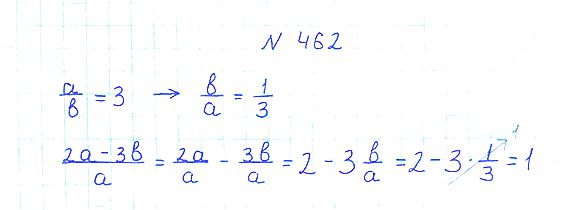 N 462
a/b = 3 → b/a = 1/3
(2a - 3b)/a = 2a/a - 3b/a = 2 - 3 b/a = 2 - 3 · 1/3 = 1
1